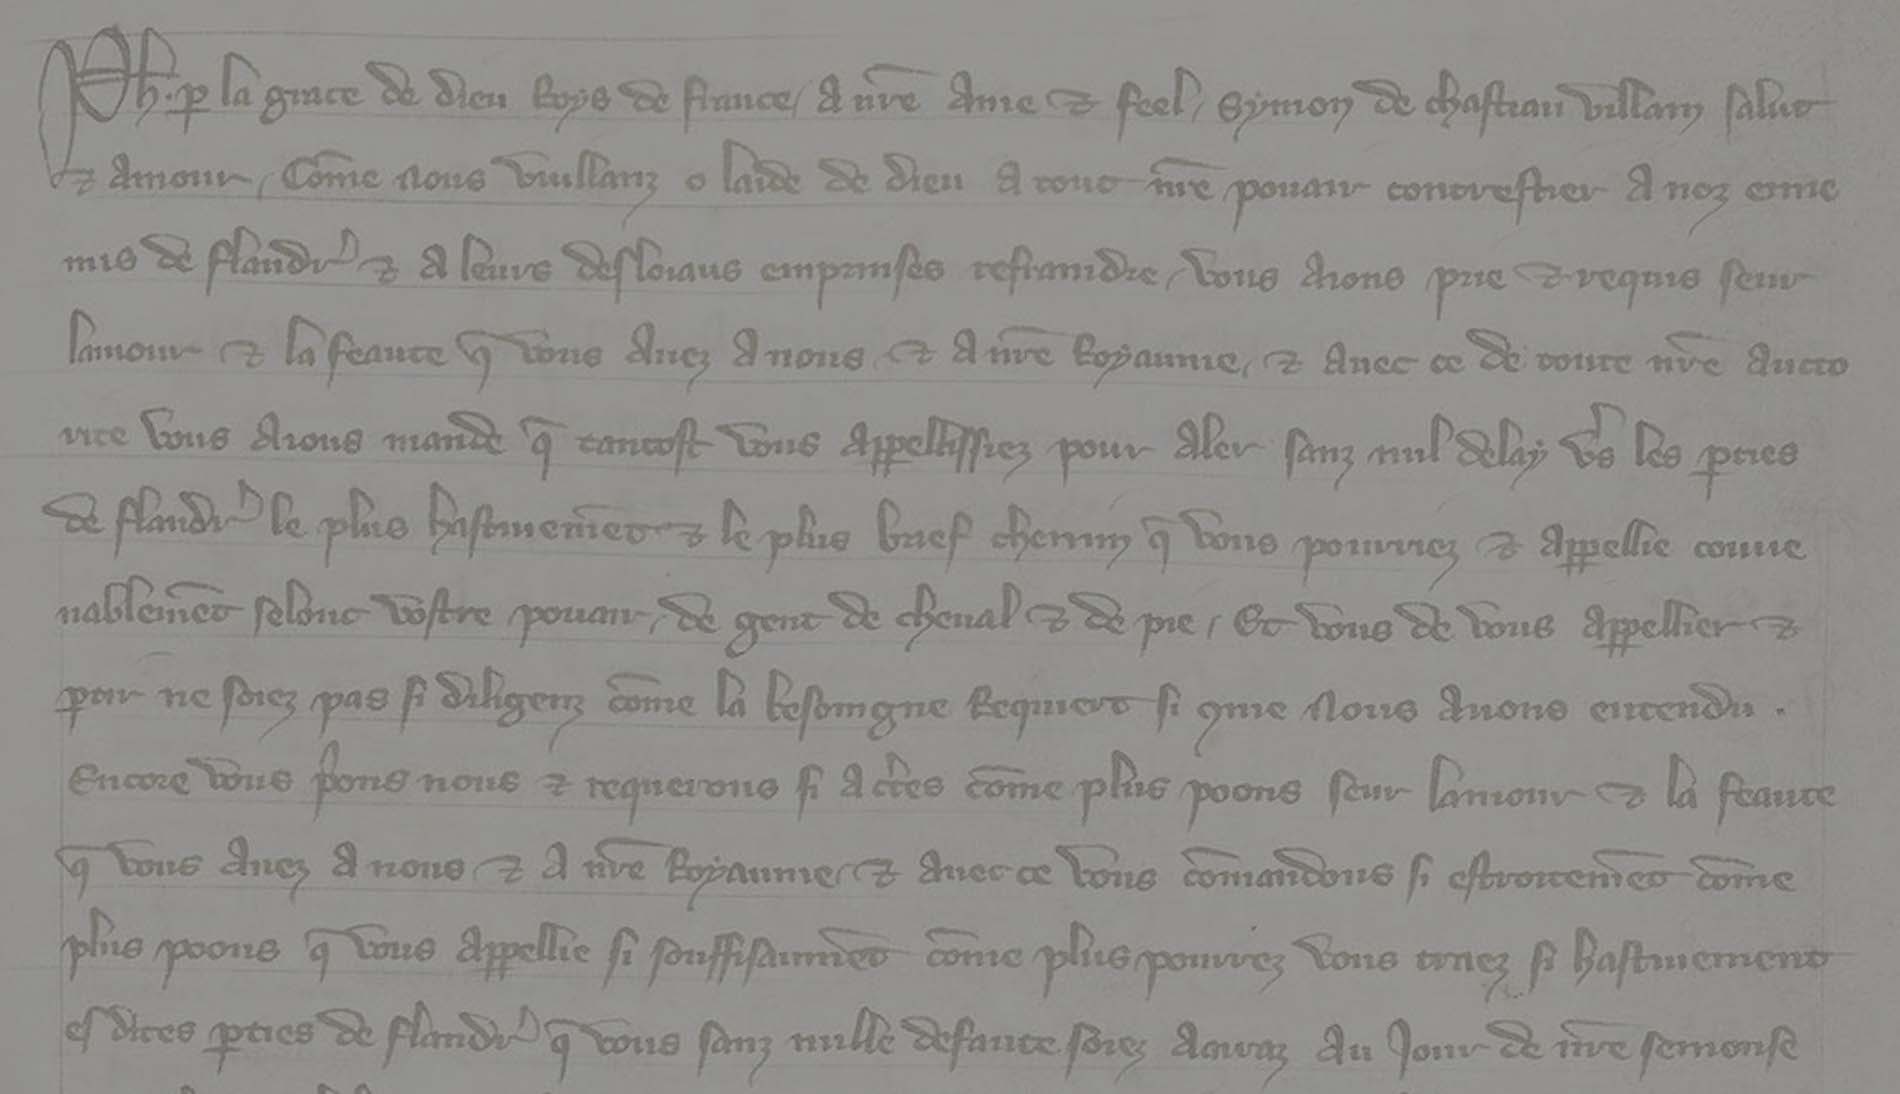 Ph. p la grace de dieu Roys de france, A nr̄e Ame ⁊ feel, Symon de chastiau villain salut
⁊ Amour, Cōme nous vuillanz o laide de dieu A tout nr̄e pouair contrester A noz enne
mis de flandr̾ ⁊ A leurs desloiaus emprinses refraindre, vous Auons prie ⁊ requis seur
lamour ⁊ la feaute q̄ vous Auez A nous ⁊ A nr̄e Royaume, ⁊ Auec ce de toute nr̄e Aucto
rite vous Auons mande q̄ tantost vous Appellissiez pour Aler sanz nul delay v̾s les pties
de flandr̾ le plus hastiuemēt ⁊ le plus brief chemin q̄ vous pourriez ⁊ Appellie conue
nablemēt selonc vostre pouair, de gent de cheual ⁊ de pie, Et vous de vous Appellier ⁊
pour ne soiez pas si diligenz cōme la besoingne Requiert si que Nous Auons entendu.
Encore vous p̾ons nous ⁊ requerons si A c̾tes cōme plus poons seur lamour ⁊ la feaute
q̄ vous Auez A nous ⁊ A nr̄e Royaume, ⁊ Auec ce vous cōmandons si estroitemēt cōme
plus poons q̄ vous Appellie si souffisaumēt cōme plus pourrez vous traiez si hastiuement
es dites pties de flandr̾ q̄ vous sanz nulle defaute soiez Auoec Au Jour de nr̄e semonse